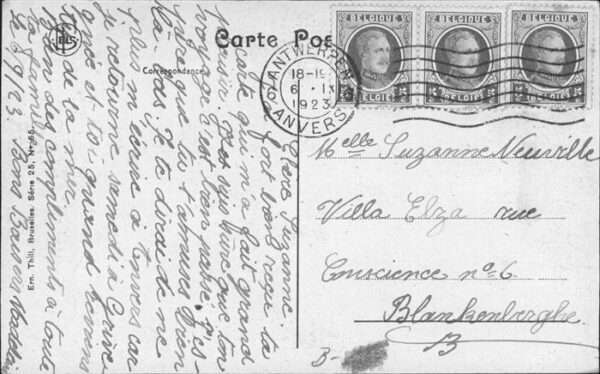 Carte Pos
Correspondance
BELGIQUE
BELGIË
BELGIQUE
BELGIË
BELGIQUE
BELGIË
ANTWERPEN
18-19
6 IX
1923
ANVERS
Chère Suzanne
J'ai fort bien reçu ta
carte qui m'a fait grand
plaisir. que ton
voyage s'est bien passé
que tu t'amuses bien
là bas. Je te dirai de ne
plus m'écrire à Anvers car
je retourne vendredi à
et toi quand reviens
tu de la mer.
Bien des compliments à toute
la famille
Le 6/9/23. Bons Baisers
Ern. Thill, Bruxelles. Série 25, No 65
Melle Suzanne Neuville
Villa Elza rue
Conscience no 6.
Blankenberghe.
B
B-